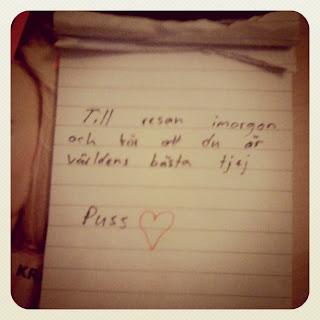 Till resan imorgon
och för att du är
världens bästa tjej
Puss
KR